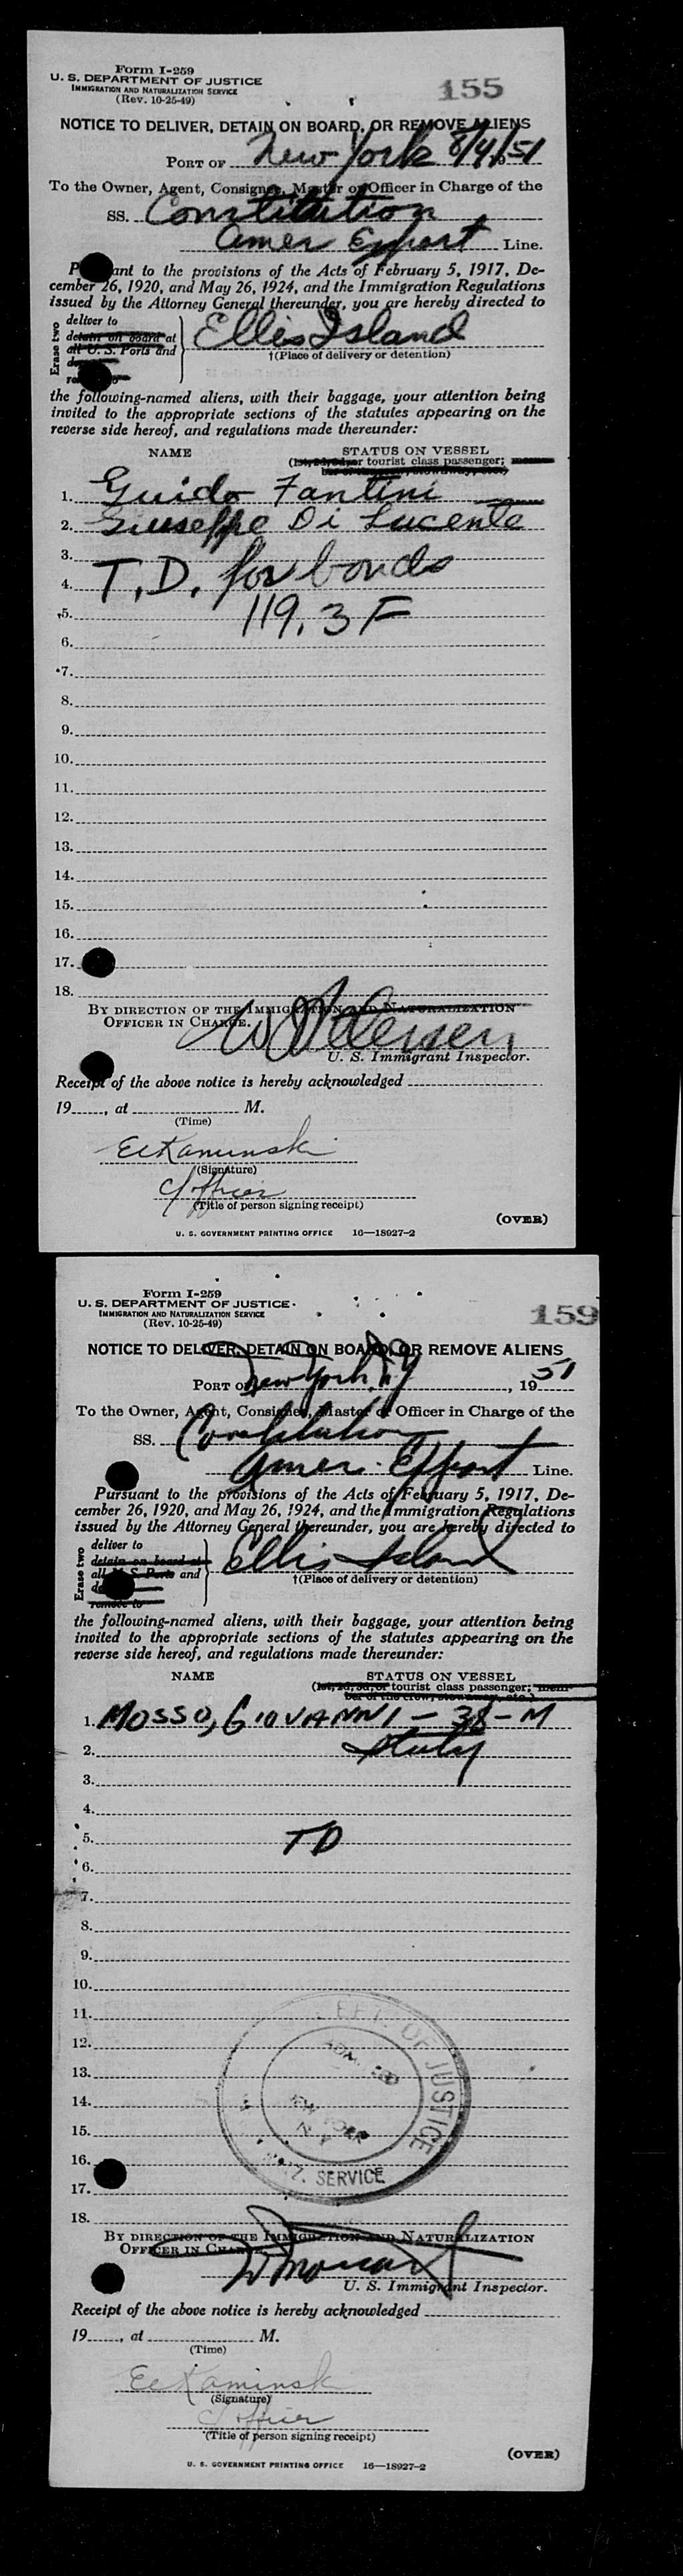 Form I-259
U. S. DEPARTMENT OF JUSTICE
IMMIGRATION AND NATURALIZATION SERVICE
(Rev. 10-25-49)
155
NOTICE TO DELIVER, DETAIN ON BOARD, OR REMOVE ALIENS
PORT OF New York 8/4/51
To the Owner, Agent, Consignee, Master or Officer in Charge of the
SS. Constitution
Amer Export Line.
P ant to the provisions of the Acts of February 5, 1917, De-
cember 26, 1920, and May 26, 1924, and the Immigration Regulations
issued by the Attorney General thereunder, you are hereby directed to
Erase two
deliver to
detain on board at
all U. S. Ports and
Ellis Island
†(Place of delivery or detention)
the following-named aliens, with their baggage, your attention being
invited to the appropriate sections of the statutes appearing on the
reverse side hereof, and regulations made thereunder:
NAME STATUS ON VESSEL
(1st, 2d, 3d, or tourist class passenger;
ber of the crew, stowaway, etc.)
1. Guido Fantini
2. Giuseppe Di Lucente
3.
4. T.D. for bonds
5. 119.3 F
6.
7.
8.
9.
10.
11.
12.
13.
14.
15.
16.
17.
18.
BY DIRECTION OF THE IMMIGRATION AND NATURALIZATION
OFFICER IN CHARGE.
U. S. Immigrant Inspector.
Receipt of the above notice is hereby acknowledged
19 , at M.
(Time)
E Kaminski
(Signature)
C/officer
(Title of person signing receipt)
(OVER)
U. S. GOVERNMENT PRINTING OFFICE 16—18927-2
Form I-259
U. S. DEPARTMENT OF JUSTICE
IMMIGRATION AND NATURALIZATION SERVICE
(Rev. 10-25-49)
159
NOTICE TO DELIVER, DETAIN ON BOARD, OR REMOVE ALIENS
PORT OF New York, NY , 19 51
To the Owner, Agent, Consignee, Master or Officer in Charge of the
SS. Constitution
Amer. Export Line.
Pursuant to the provisions of the Acts of February 5, 1917, De-
cember 26, 1920, and May 26, 1924, and the Immigration Regulations
issued by the Attorney General thereunder, you are hereby directed to
Erase two
deliver to
detain on board at
all U. S. Ports and
remove to
Ellis Island
†(Place of delivery or detention)
the following-named aliens, with their baggage, your attention being
invited to the appropriate sections of the statutes appearing on the
reverse side hereof, and regulations made thereunder:
NAME STATUS ON VESSEL
(1st, 2d, 3d, or tourist class passenger; mem-
ber of the crew, stowaway, etc.)
1. MOSSO, GIOVANNI - 38 - M
2. Italy
3.
4.
5. TD
6.
7.
8.
9.
10.
11.
12.
13.
14.
15.
16.
17.
18.
DEPT. OF JUSTICE
ADMITTED
NEW YORK
N. Y.
SERVICE
BY DIRECTION OF THE IMMIGRATION AND NATURALIZATION
OFFICER IN CHARGE.
U. S. Immigrant Inspector.
Receipt of the above notice is hereby acknowledged
19 , at M.
(Time)
E Kaminsk
(Signature)
C/officer
(Title of person signing receipt)
(OVER)
U. S. GOVERNMENT PRINTING OFFICE 16—18927-2